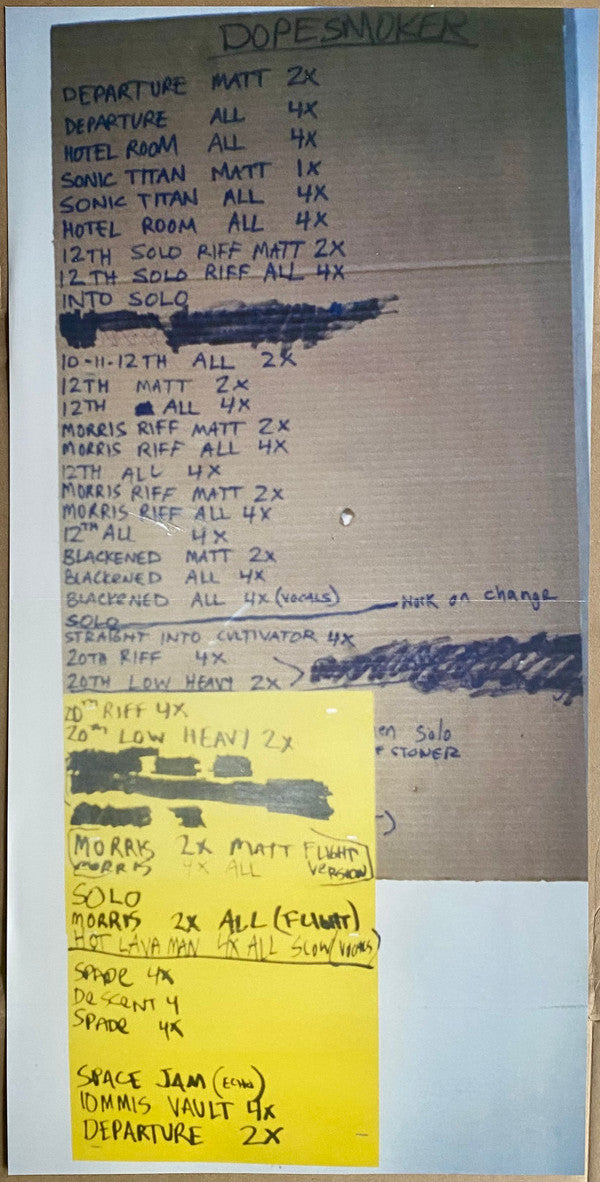 DOPESMOKER
DEPARTURE MATT 2X
DEPARTURE ALL 4X
HOTEL ROOM ALL 4X
SONIC TITAN MATT 1X
SONIC TITAN ALL 4X
HOTEL ROOM ALL 4X
12TH SOLO RIFF MATT 2X
12TH SOLO RIFF ALL 4X
INTO SOLO
10-11-12TH ALL 2X
12TH MATT 2X
12TH ALL 4X
MORRIS RIFF MATT 2X
MORRIS RIFF ALL 4X
12TH ALL 4X
MORRIS RIFF MATT 2X
MORRIS RIFF ALL 4X
12TH ALL 4X
BLACKENED MATT 2X
BLACKENED ALL 4X
BLACKENED ALL 4X (VOCALS) Work on change
SOLO
STRAIGHT INTO CULTIVATOR 4X
20TH RIFF 4X
20TH LOW HEAVY 2X
20TH RIFF 4X
20TH LOW HEAVY 2X
en Solo
F STONER
MORRIS 2X MATT FLIGHT
MORRIS 4X ALL VERSION
SOLO
MORRIS 2X ALL (FLIGHT)
HOT LAVA MAN 4X ALL SLOW (VOCALS)
SPADE 4X
DESCENT 4
SPADE 4X
SPACE JAM (ECHO)
IOMMIS VAULT 4X
DEPARTURE 2X